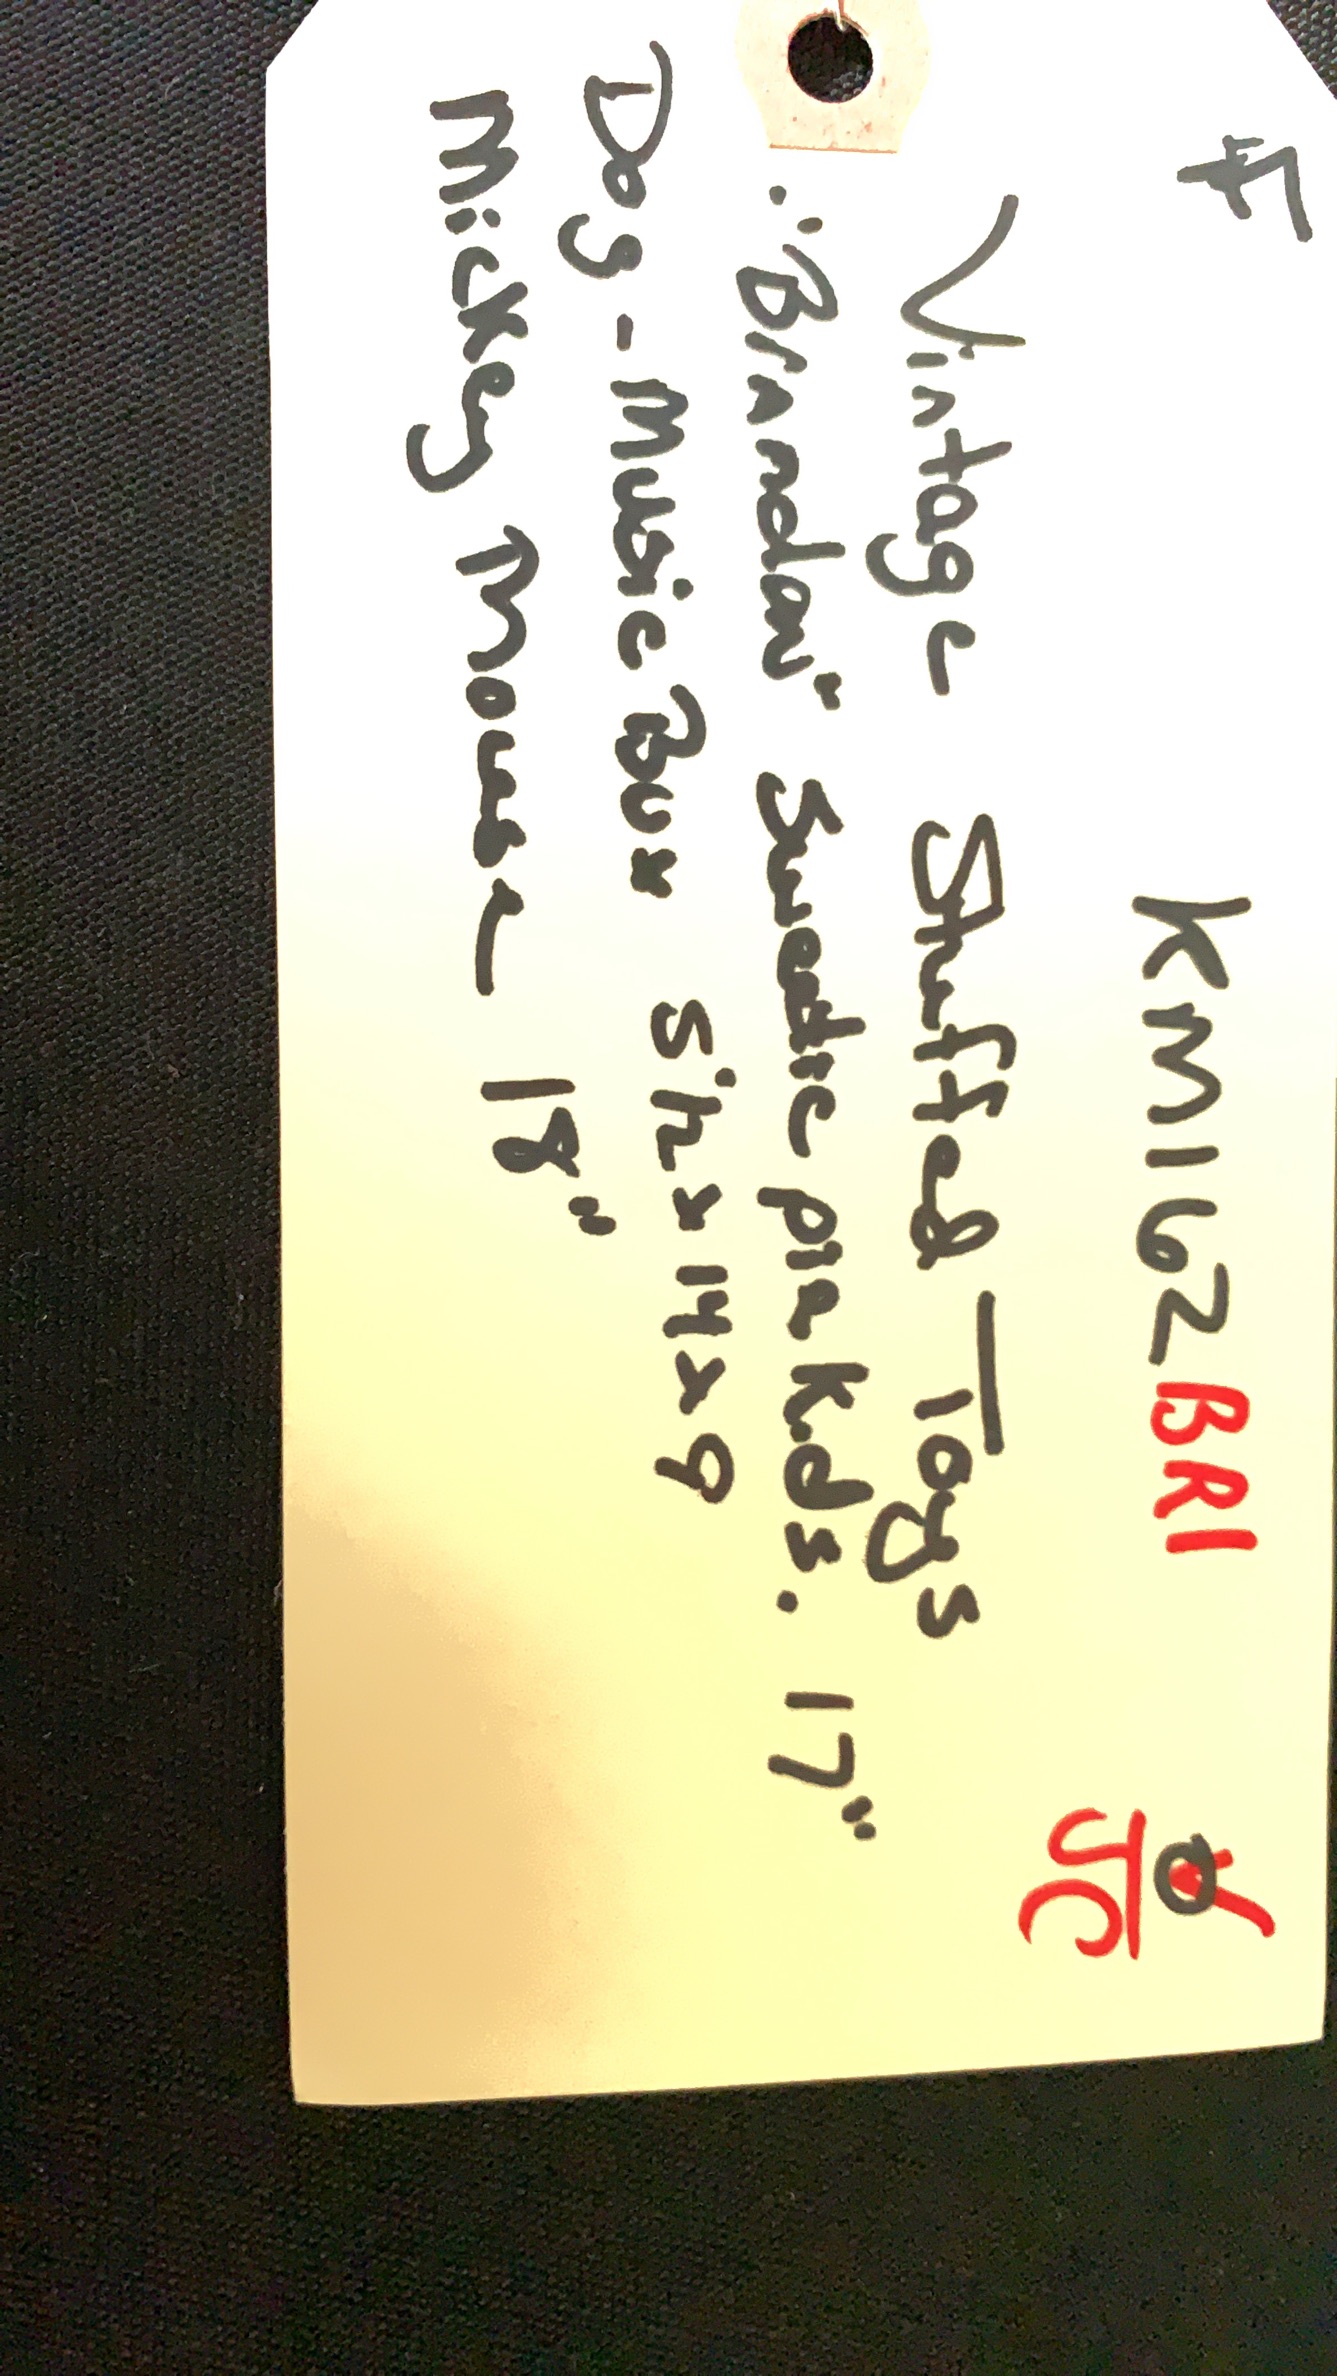 KM162 BR1
JC
Vintage Stuffed Toys
"Brandon" Suedre pla kds. 17"
Dog - Music Box 5 1/2 x 14 x 9
Mickey Mouse 18"